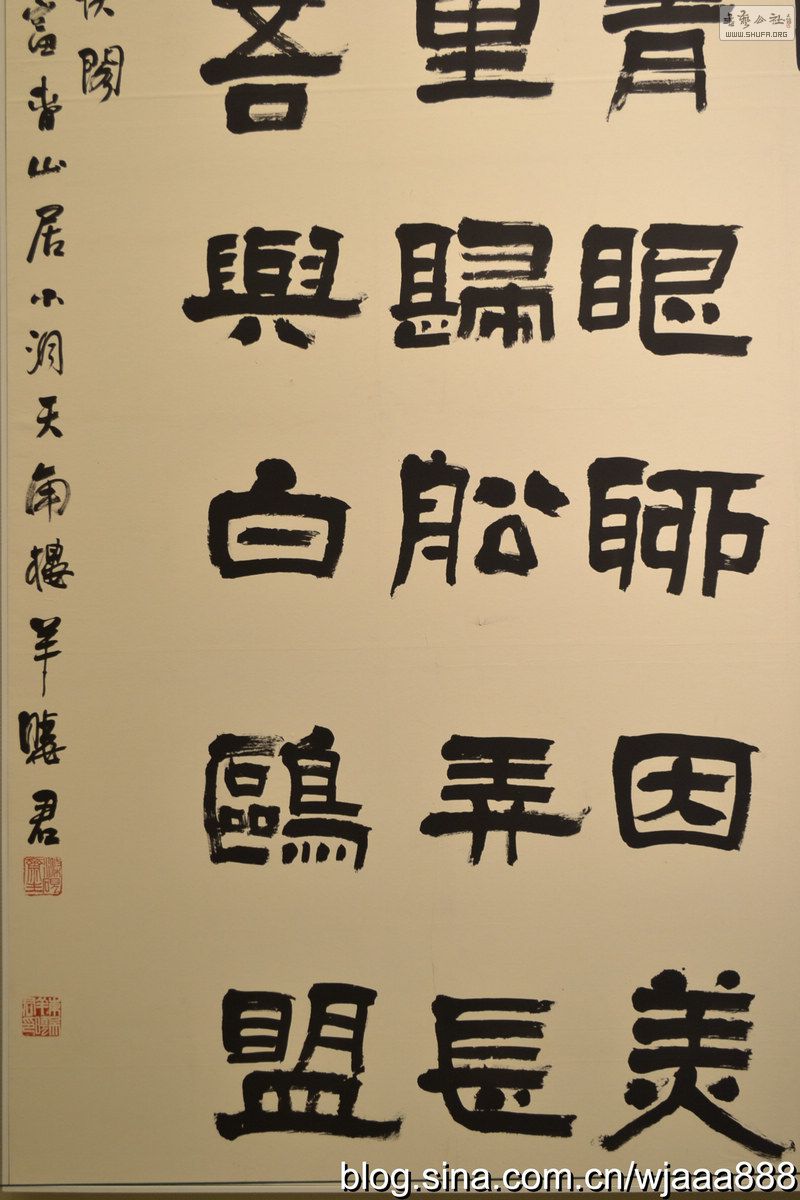 書藝公社
WWW.SHUFA.ORG
青眼聊因美
里歸舩弄長
吾與白鷗盟
閣
富春山居小洞天南樓羊曉君
blog.sina.com.cn/wjaaa888